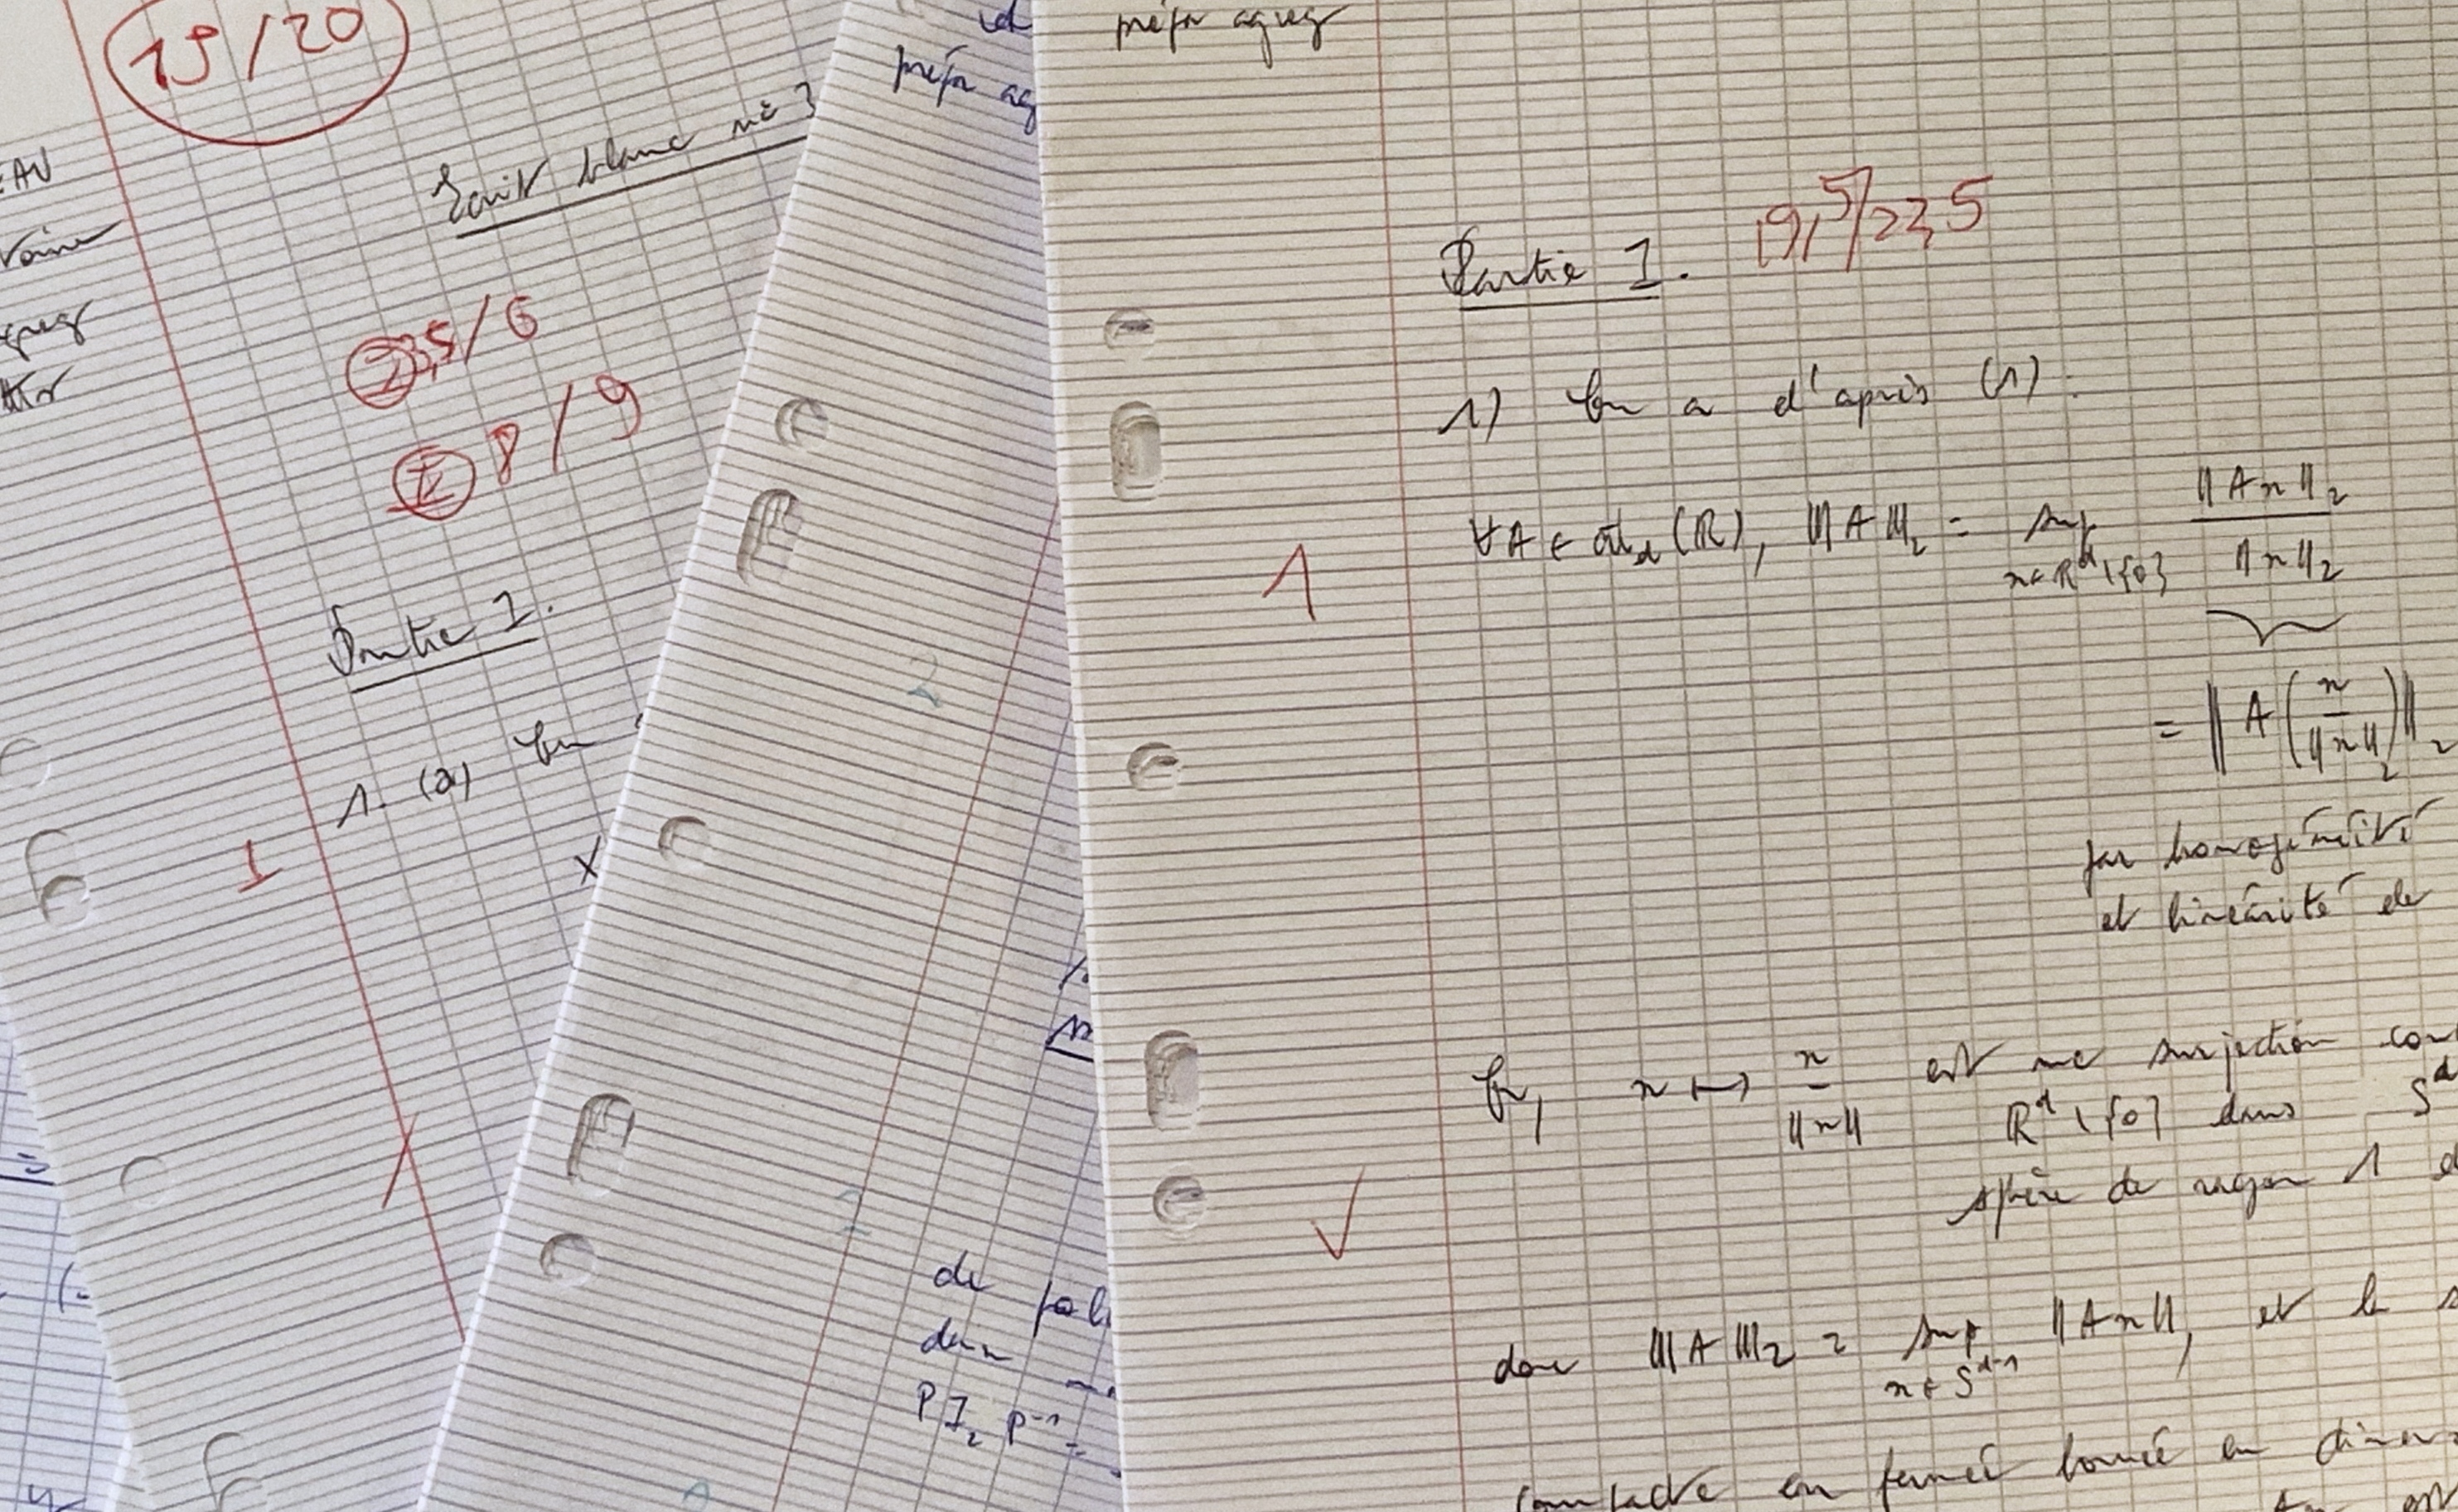 15/20
EAU
Ecrit blanc n° 3
5/6
8/9
Partie I.
1. (a) On
1
X
prépa ag
2
de
dan
P I₂ P⁻¹ =
prépa agreg
Partie I.
19,5/22,5
1) On a d'après (1) :
1
∀A ∈ ℳ_d(ℝ), |||A|||₂ = sup_{x∈ℝ^d\{0}} ||Ax||₂ / ||x||₂
= ||A(x/||x||₂)||₂
par homogénéité
et linéarité de
Or, x ↦ x/||x|| est une surjection
ℝ^d \ {0} dans S^d
sphère de rayon 1
donc |||A|||₂ = sup_{x∈S^{d-1}} ||Ax||, et le
compacte en fermé borné en
est